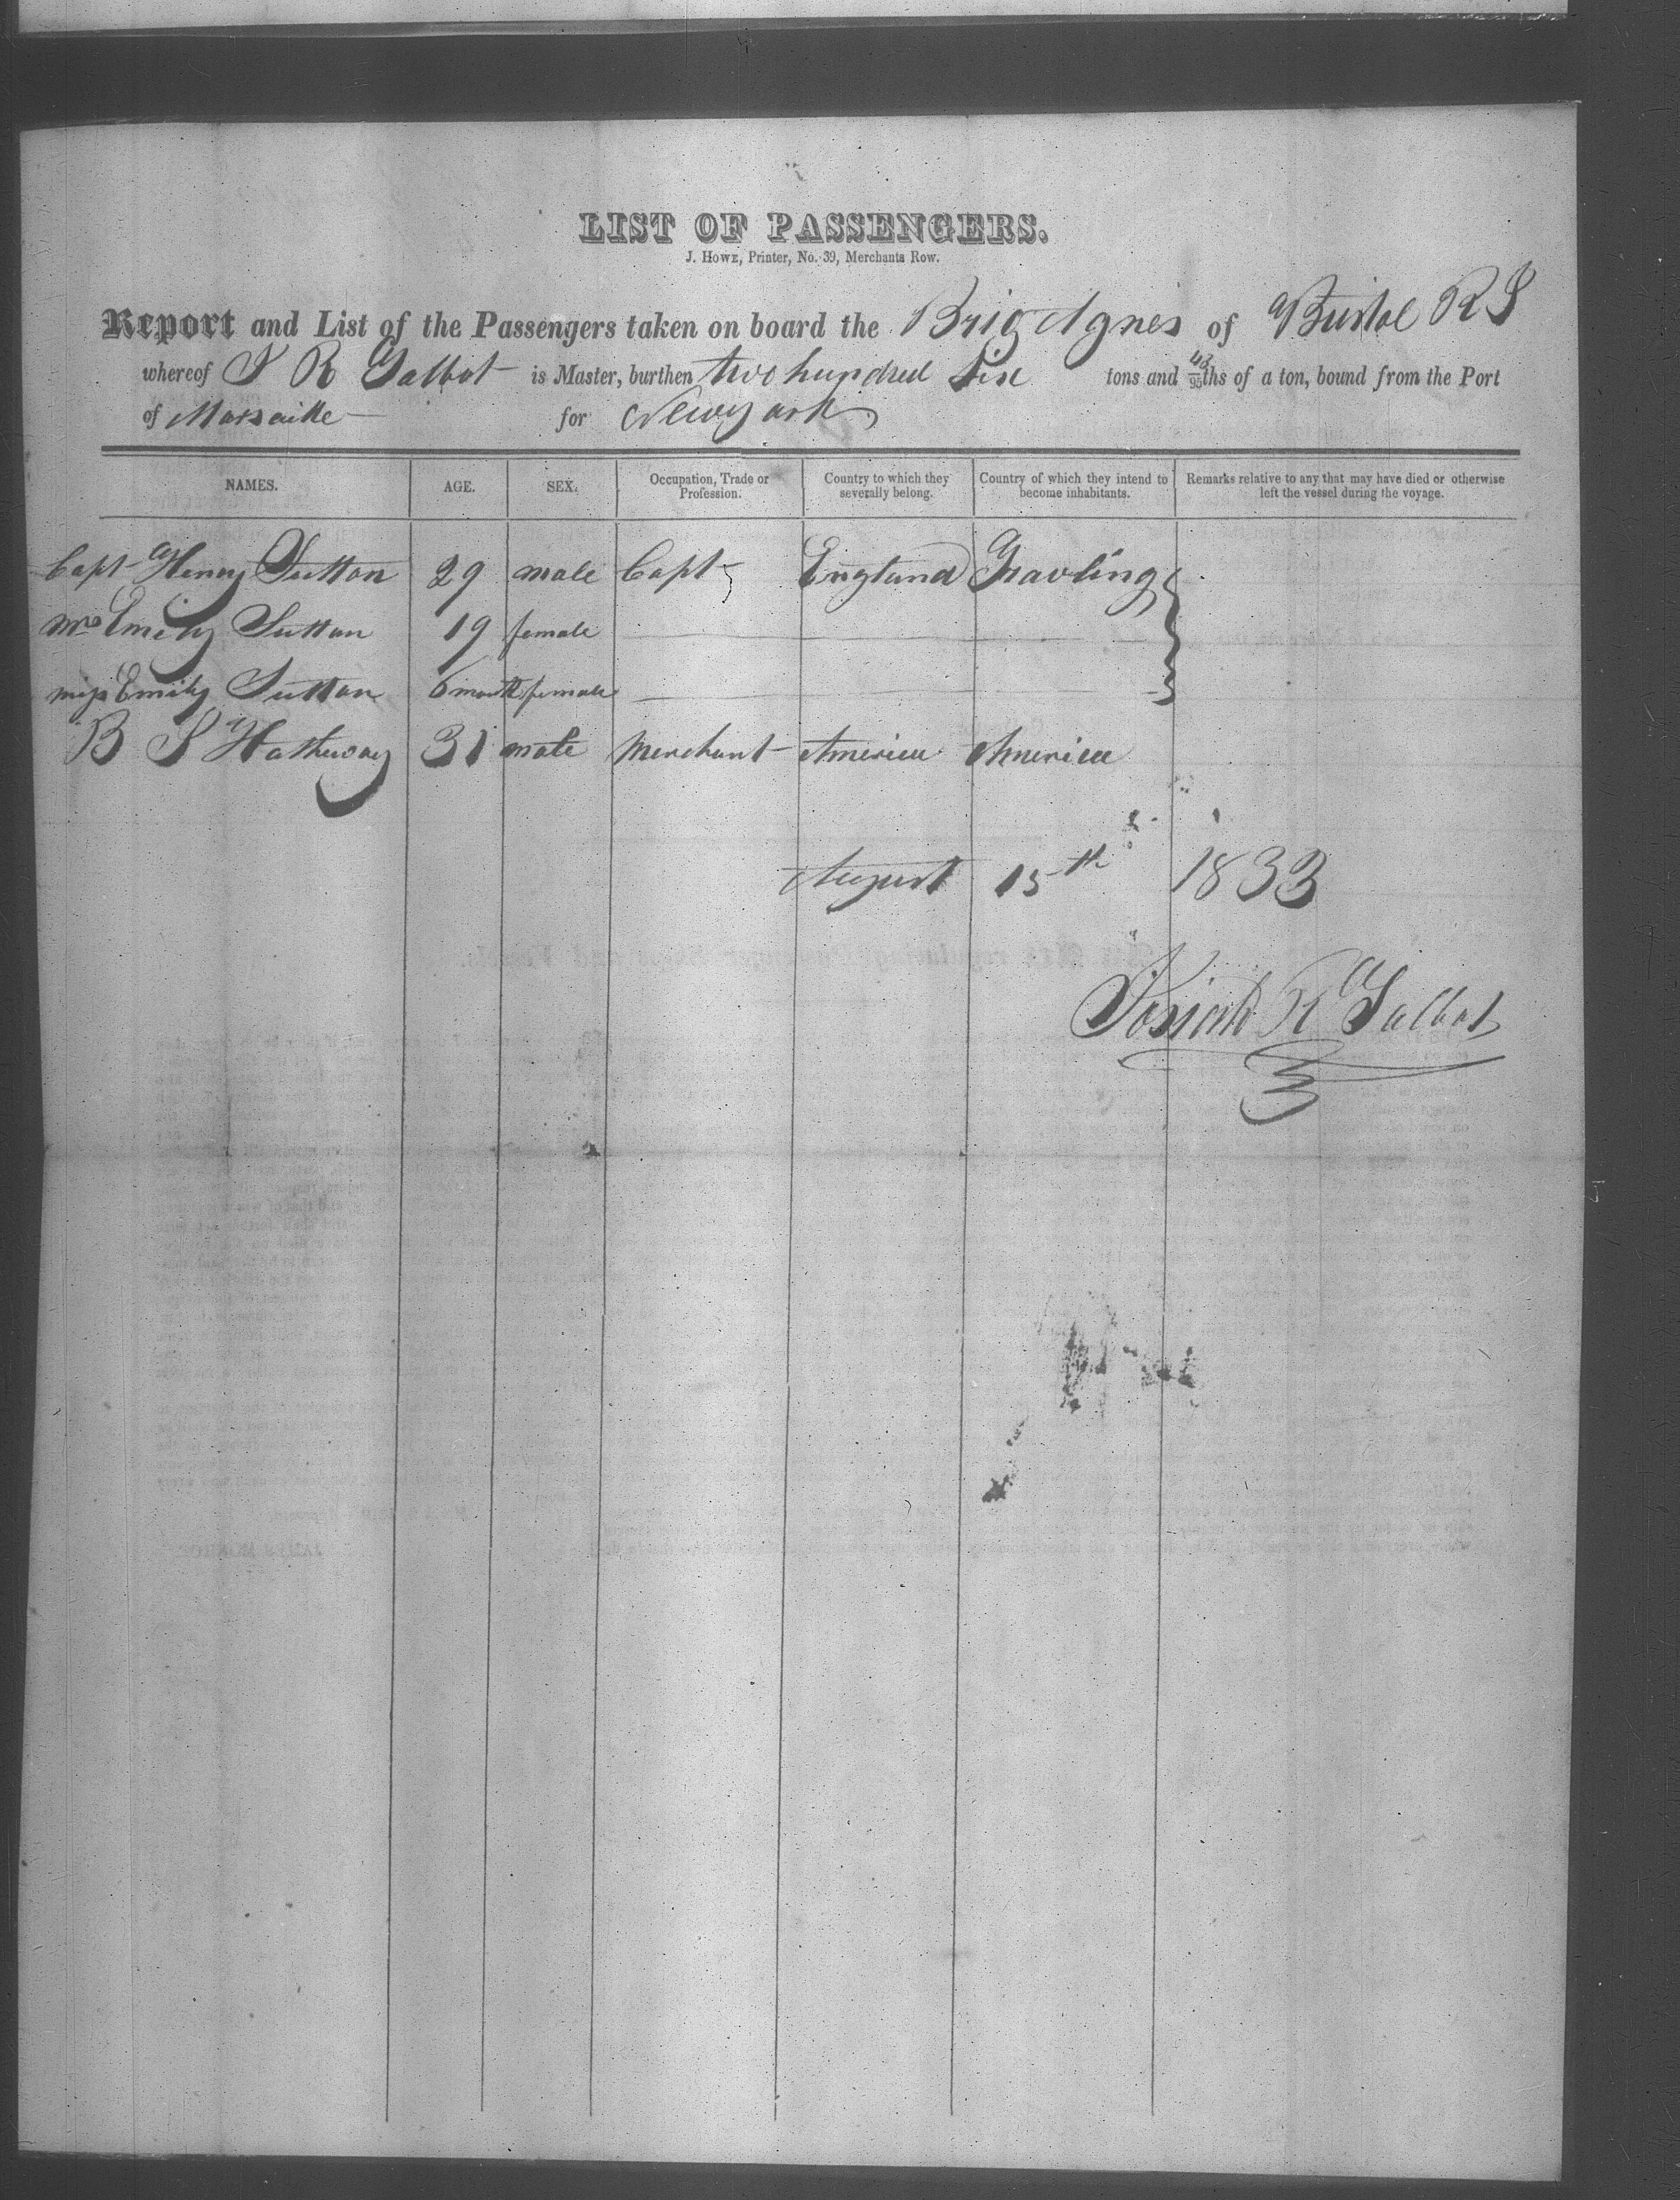 LIST OF PASSENGERS.
J. HOWE, Printer, No. 39, Merchants Row.
Report and List of the Passengers taken on board the Brig Agnes of Bristol R I
whereof J R Talbot is Master, burthen two hundred Six tons and 43/95ths of a ton, bound from the Port
of Marsaille for Newyork
NAMES. AGE. SEX. Occupation, Trade or Profession. Country to which they severally belong. Country of which they intend to become inhabitants. Remarks relative to any that may have died or otherwise left the vessel during the voyage.
Capt Henry Sutton 29 male Capt England Travling
Mrs Emily Sutton 19 female
miss Emily Sutton 6 month female
B S Hatheway 31 male Merchant America America
August 15th 1833
Josiah R Talbot